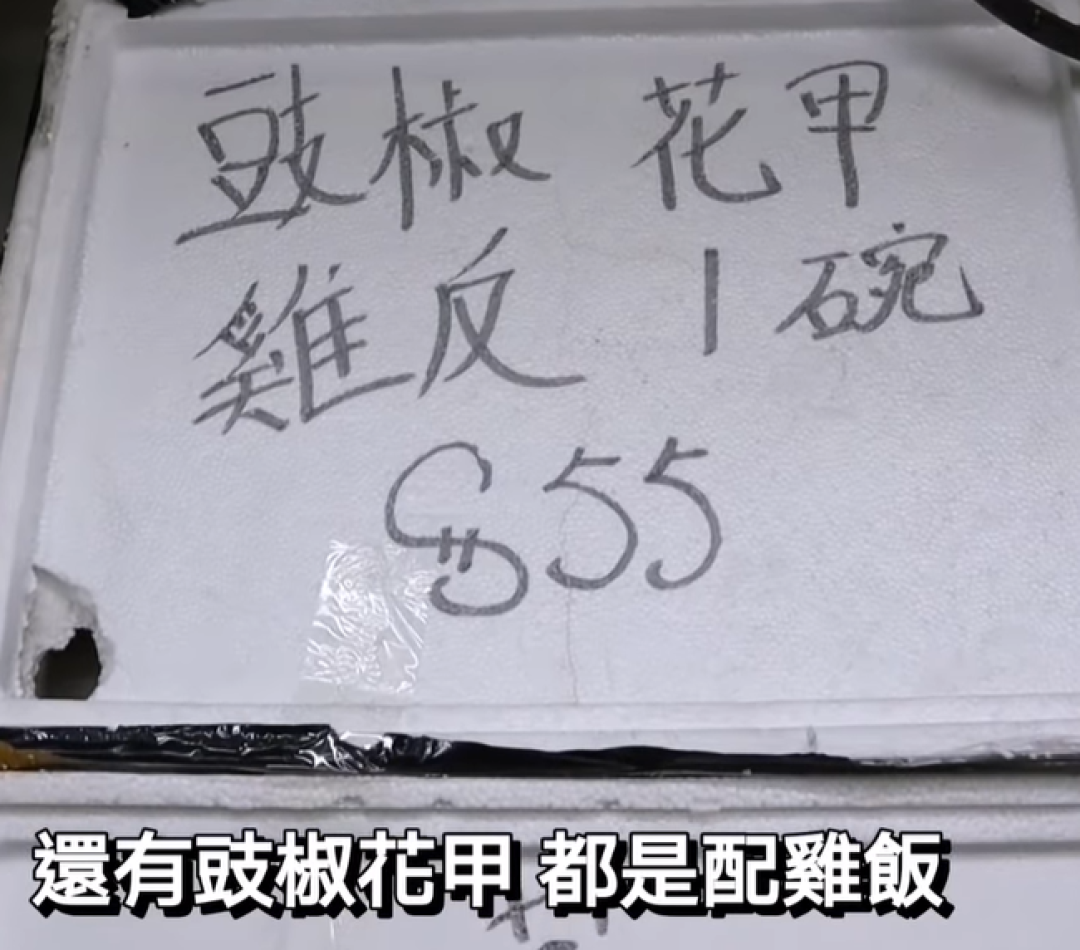 豉椒 花甲
雞反 1碗
$55
還有豉椒花甲 都是配雞飯